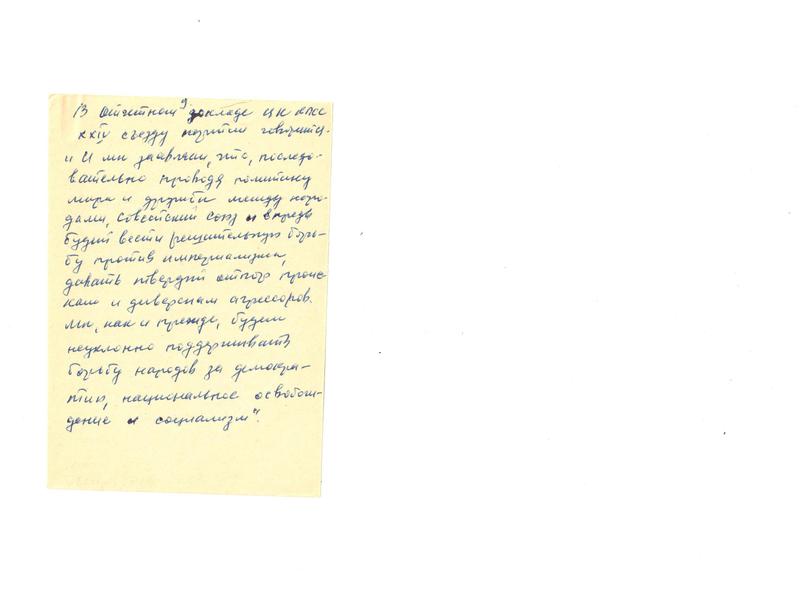 В отчетном докладе ЦК КПСС
XXIV съезду партии говорится:
„ И мы заявляем, что, последо-
вательно проводя политику
мира и дружбы между наро-
дами, Советский Союз и впредь
будет вести решительную борь-
бу против империализма,
давать твердый отпор проис-
кам и диверсиям агрессоров.
Мы, как и прежде, будем
неуклонно поддерживать
борьбу народов за демокра-
тию, национальное освобож-
дение и социализм".